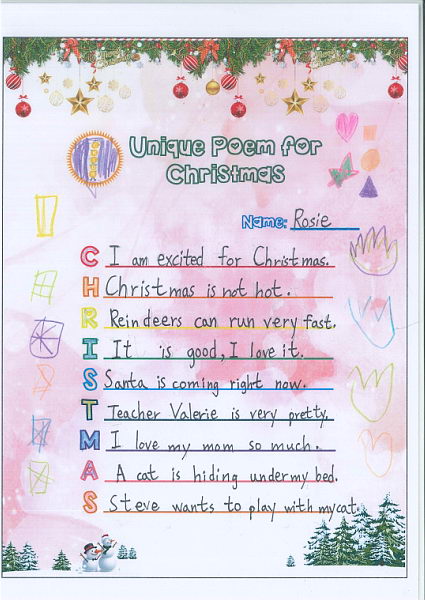 Unique Poem for
Christmas
Name: Rosie
C I am excited for Christmas.
H Christmas is not hot.
R Reindeers can run very fast.
I It is good, I love it.
S Santa is coming right now.
T Teacher Valerie is very pretty.
M I love my mom so much.
A A cat is hiding under my bed.
S Steve wants to play with my cat.